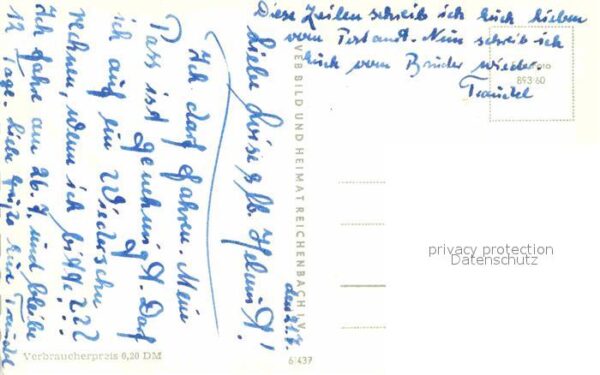 den 21.7.
Liebe Luise & lb. Helmut!
Ich darf fahren. Mein
Pass ist genehmigt. Darf
ich auf ein Wiedersehn
rechnen, wenn ich bitte???
Ich fahre am 26.7 und bleibe
12 Tage. Liebe Grüße Eure Traudel
Diese Zeilen schreib ich Euch Lieben
vom Postamt. Nun schreib ich
Euch vom Bruder wieder.
Traudel
VEB BILD UND HEIMAT REICHENBACH I.V.
893/60
privacy protection
Datenschutz
Verbraucherpreis 0,20 DM
6/437